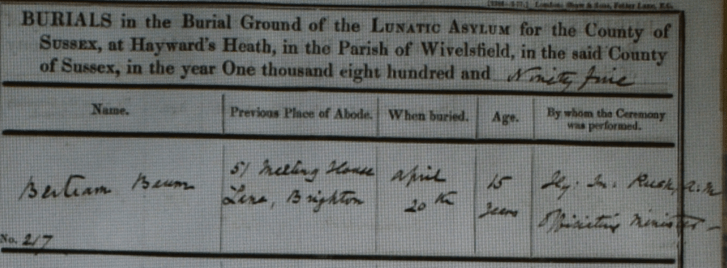 BURIALS in the Burial Ground of the LUNATIC ASYLUM for the County of
SUSSEX, at Hayward's Heath, in the Parish of Wivelsfield, in the said County
of Sussex, in the year One thousand eight hundred and Ninety five
Name. Previous Place of Abode. When buried. Age. By whom the Ceremony was performed.
Bertram 51 Meeting House April 15 Hy: Jn: Rush, A.M
Lane, Brighton 20th years Officiating Minister
No. 217